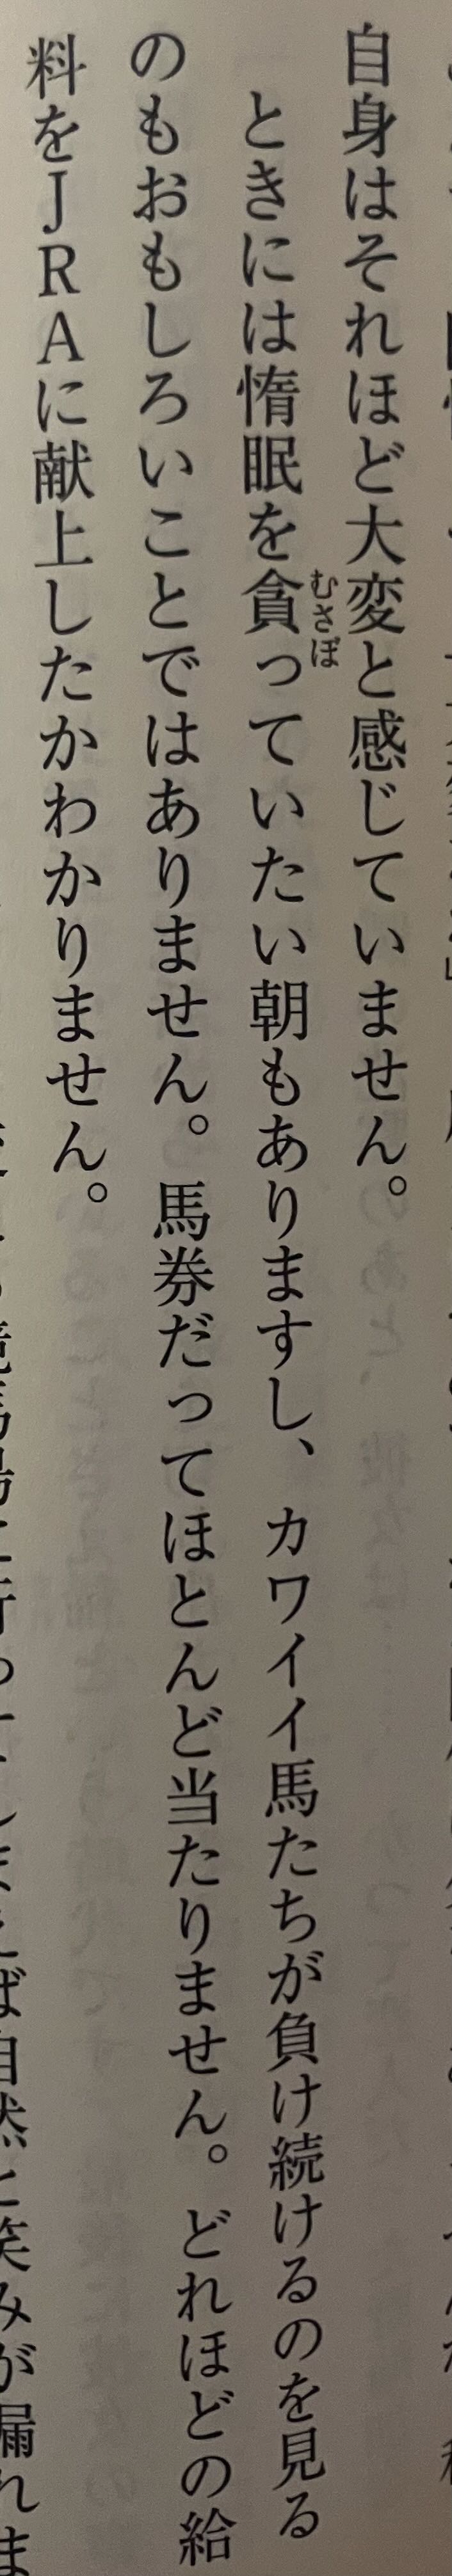 自身はそれほど大変と感じていません。
ときには惰眠を貪っていたい朝もありますし、カワイイ馬たちが負け続けるのを見る
むさぼ
のもおもしろいことではありません。馬券だってほとんど当たりません。どれほどの給
料をJRAに献上したかわかりません。
競馬場に行ってしまえば自然と笑みが漏れま